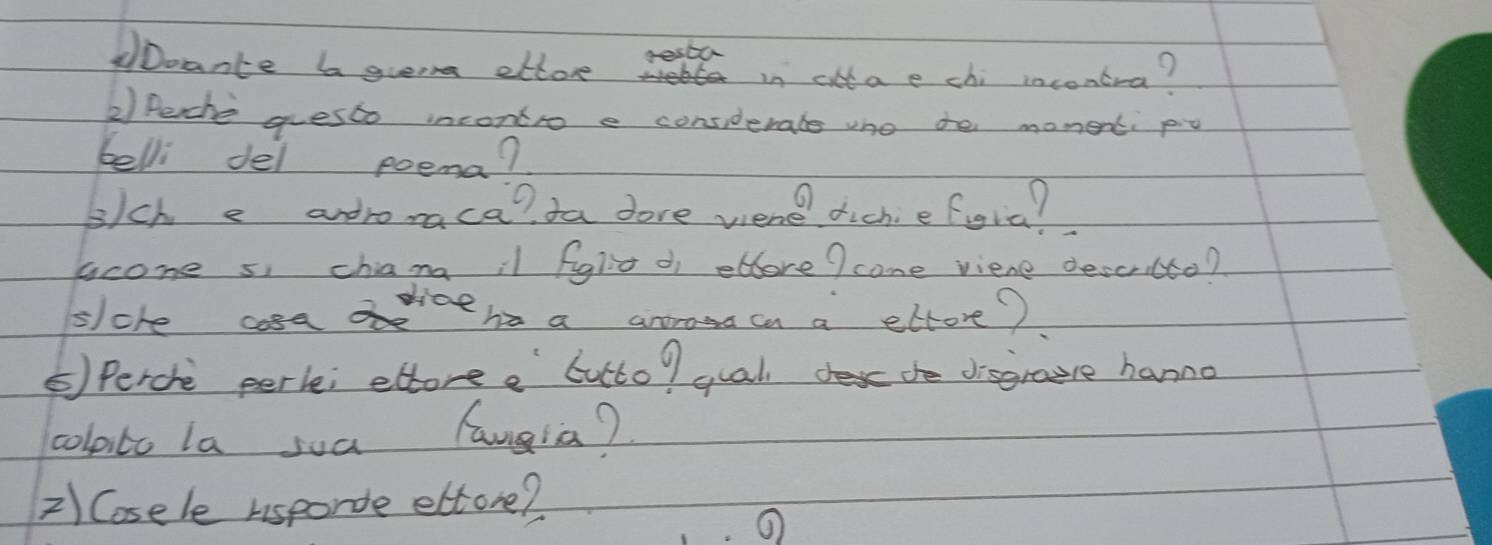 1)Doante la guerra ettore resta in citta e chi incontra?
2) Perchè questo incontro e considerato uno dei momenti più
belli del poema?
3)Chi e andromaca? da dove viene? di chi e figlia?
4)come si chiama il figlio di ettore? come viene descritto?
5)che cosa dice a andromaca a ettore?
6) Perchè per lei ettore e' tutto? quali disgrazie hanno
colpito la sua famiglia?
7) Cose le risponde ettore?